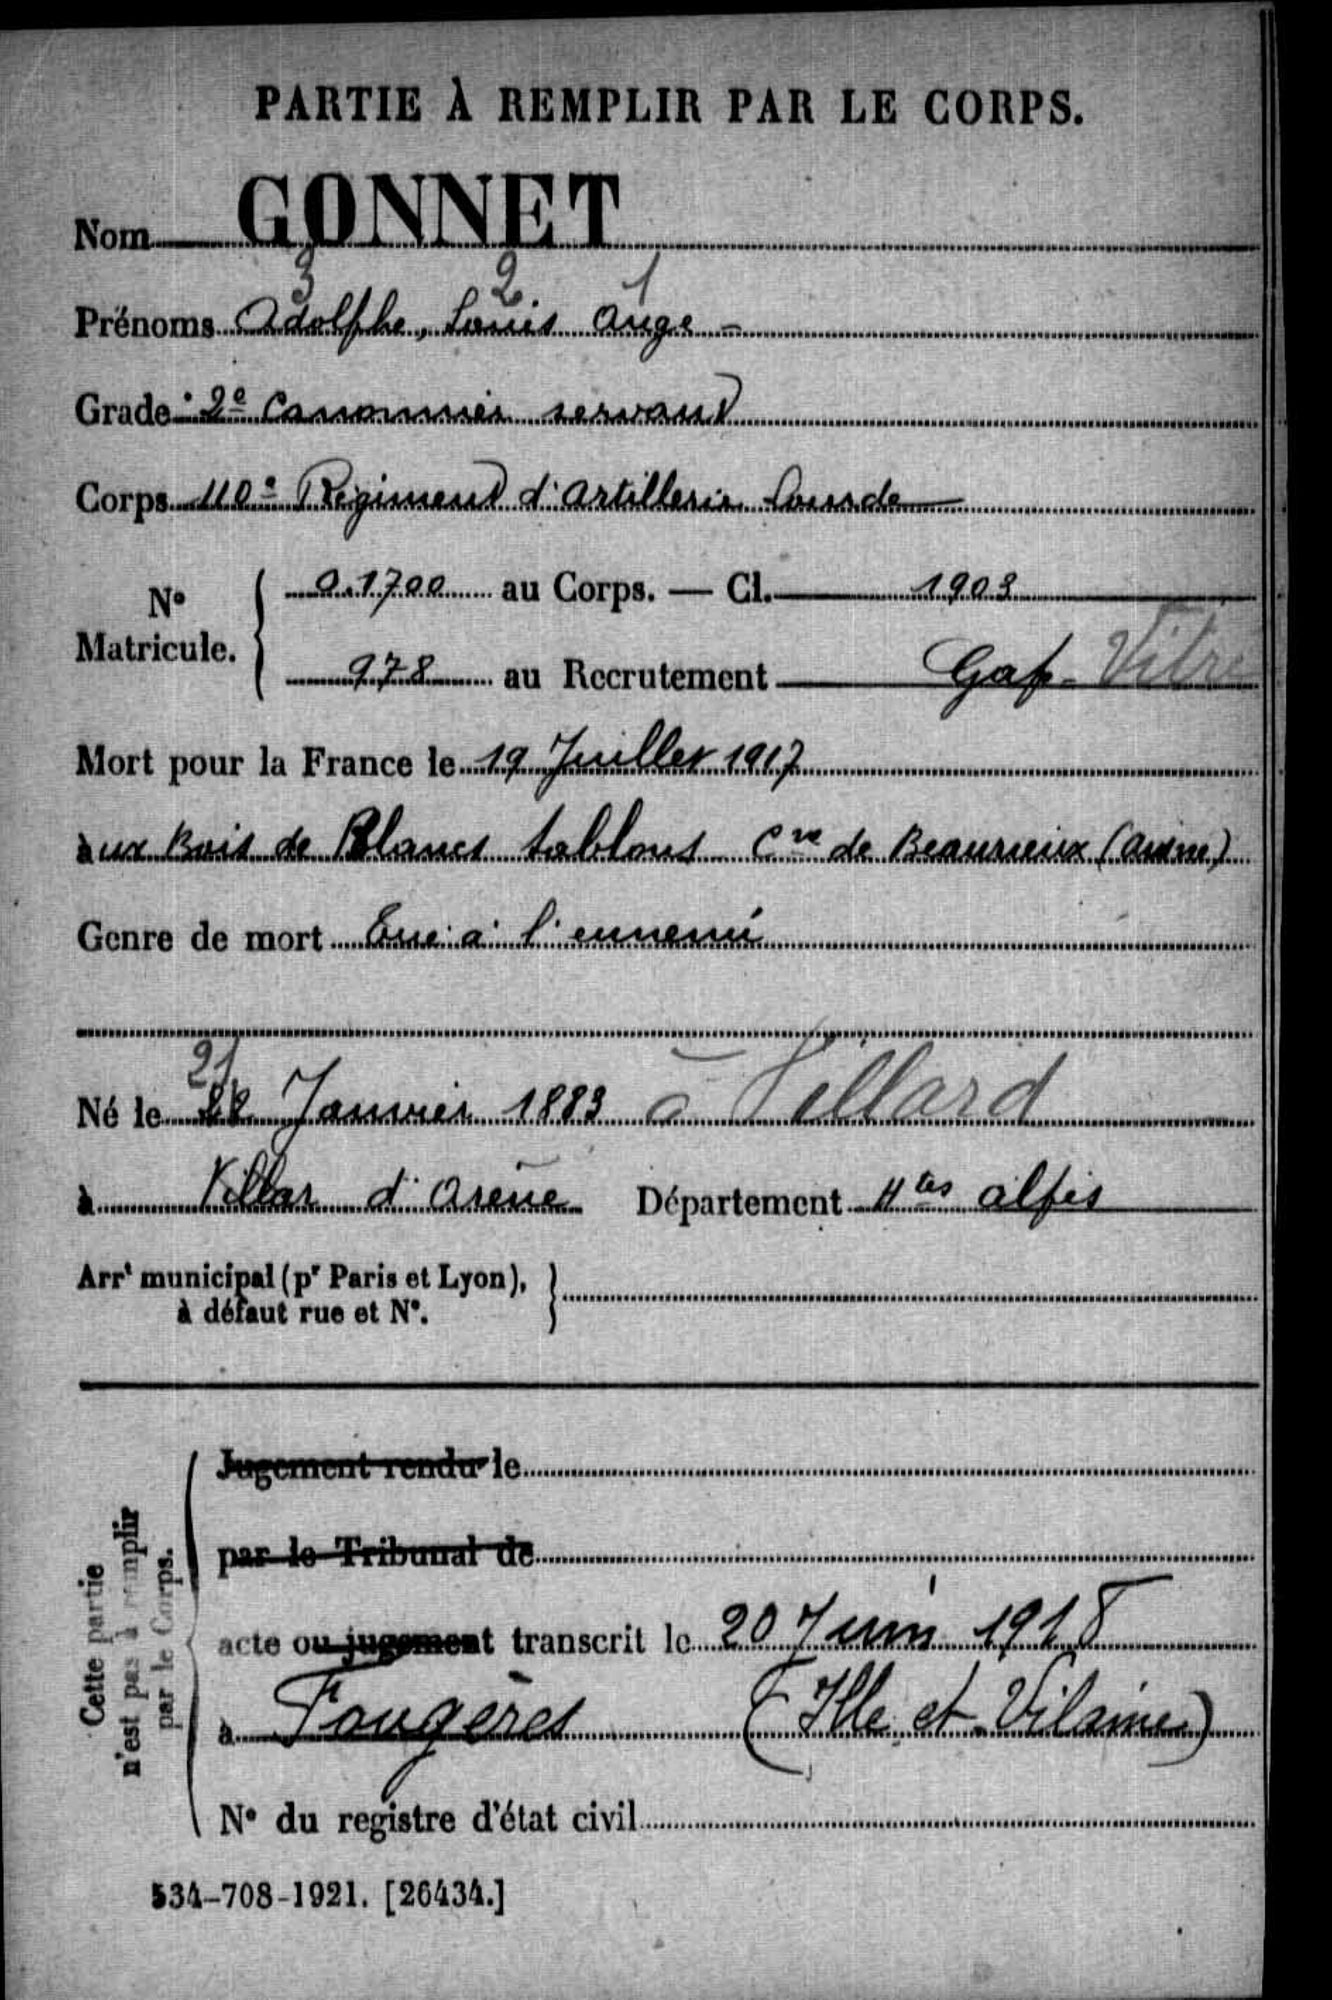 PARTIE À REMPLIR PAR LE CORPS.
Nom GONNET
3 2 1
Prénoms Adolphe, Louis Ange -
Grade 2e Canonnier servant
Corps 110e Régiment d'Artillerie Lourde
N° Matricule. { 0.1700 au Corps. — Cl. 1903
978 au Recrutement Gap - Vitré
Mort pour la France le 19 Juillet 1917
aux Bois de Blancs sablons Cne de Beaurieux (Aisne)
Genre de mort Tué à l'ennemi
21
Né le 28 Janvier 1883 à Villard
à Villar d'Arène Département Htes Alpes
Arrt municipal (pr Paris et Lyon),
à défaut rue et N°.
Cette partie
n'est pas à remplir
par le Corps.
Jugement rendu le
par le Tribunal de
acte ou jugement transcrit le 20 Juin 1918
à Fougères (Ille et Vilaine)
N° du registre d'état civil
534-708-1921. [26434.]